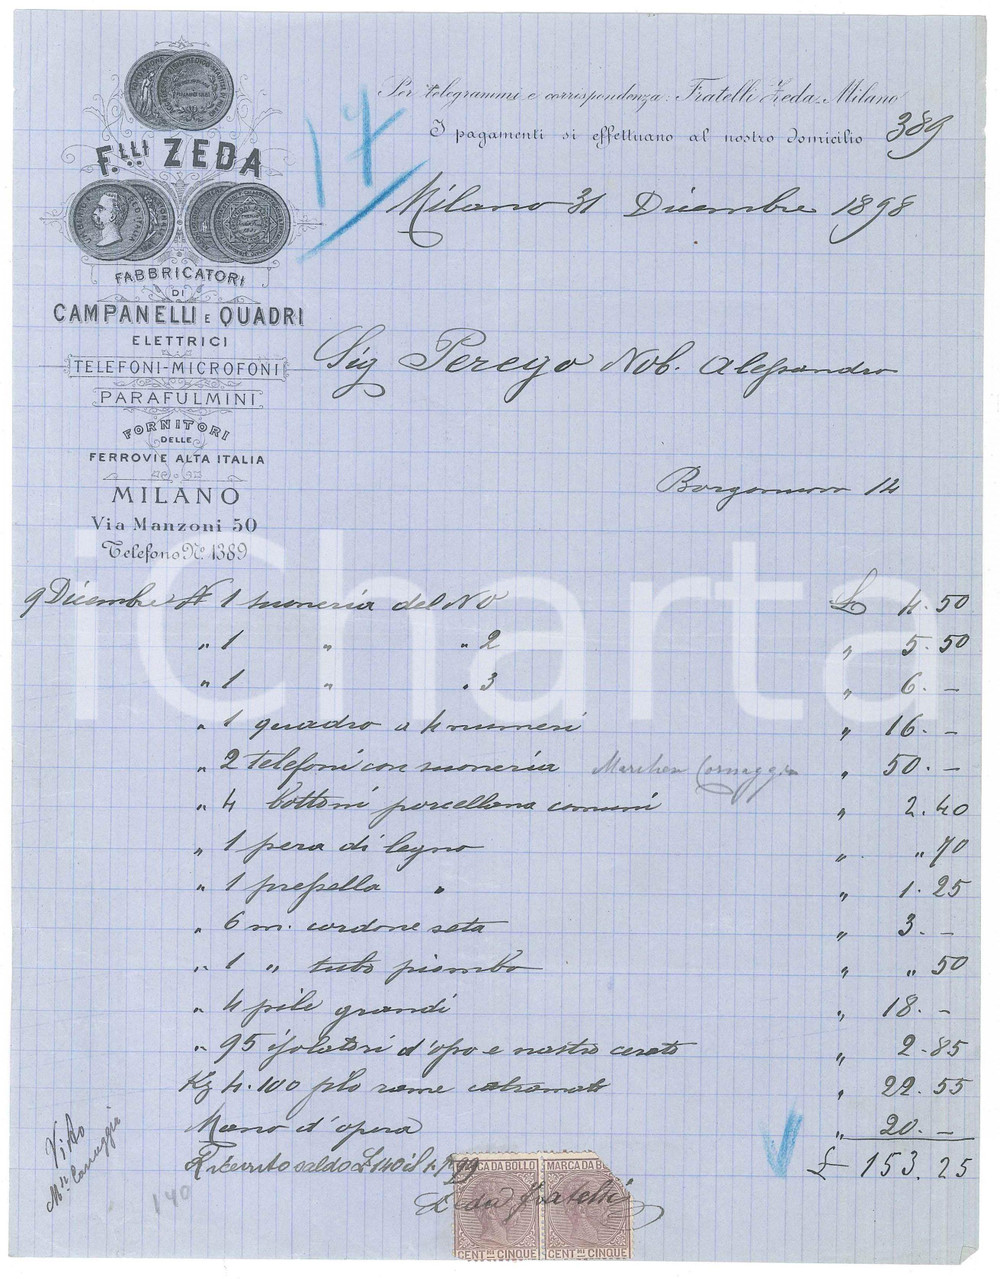 Per telegrammi e corrispondenza: Fratelli Zeda, Milano
I pagamenti si effettuano al nostro domicilio 389
17
F.LLI ZEDA
Milano 31 Dicembre 1898
FABBRICATORI
DI
CAMPANELLI E QUADRI
ELETTRICI
TELEFONI-MICROFONI
PARAFULMINI
FORNITORI
DELLE
FERROVIE ALTA ITALIA
MILANO
Via Manzoni 50
Telefono No. 1389
Sig Perego Nob. Alessandro
Borgonuovo 14
9 Dicembre N 1 suoneria del N0 £ 4.50
" 1 " " 2 " 5.50
" 1 " " 3 " 6.-
" 1 quadro a 4 numeri " 16.-
" 2 telefoni con suoneria " 50.-
" 4 bottoni porcellana comuni " 2.40
" 1 pera di legno " " 70
" 1 presella " " 1.25
" 6 m. cordone seta " 3.-
" 1 " tubo piombo " " 50
" 4 pile grandi " 18.-
" 95 isolatori d'osso e nastro cerato " 2.85
Kg 4.100 filo rame " 22.55
Mano d'opera " 20.-
£ 153.25
Ricevuto saldo £ 140 il
Zeda Fratelli
Visto
140
MARCA DA BOLLO
CENT.MI CINQUE
MARCA DA B
CENT.MI CINQUE
iCharta